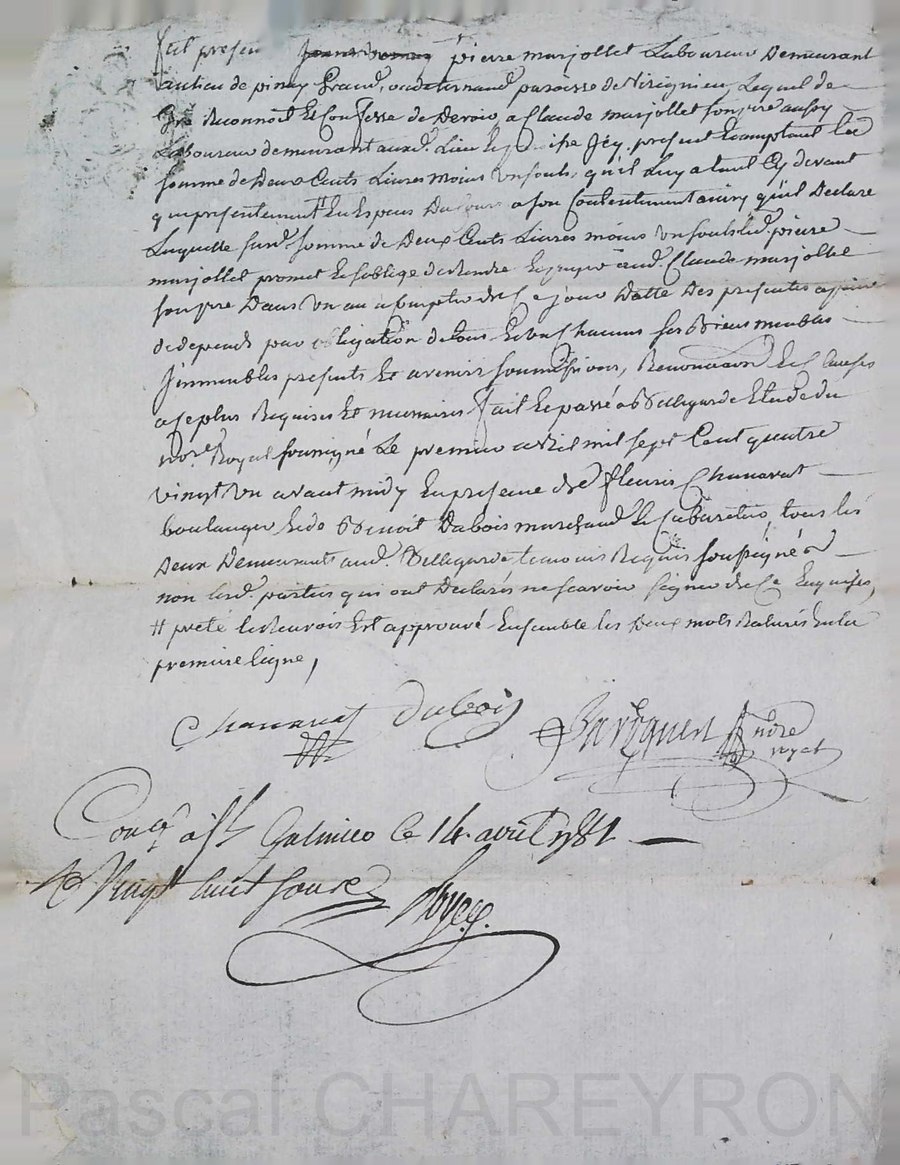 fut present pierre marjollet Laboureur Demeurant
au lieu de pinay Grand, paroisse de Virignieu Lequel de
Gré Reconnoit Et Confesse de Devoir a Claude marjollet son frere aussy
Laboureur demeurant aud. Lieu Icy present Et acceptant la
somme de Deux Cents Livres moins un souls, qu'il Luy a Cy devant
# presentement En Especes Du Cours a son Contentement ainsy qu'il Declare
Laquelle susd. somme de Deux Cents Livres moins Un souls led. pierre
marjollet promet Et s'oblige de Rendre Et payer aud. Claude marjollet
son frere Dans Un an a Compter de Ce jour Datte Des presentes a peine
de depends par obligation de tous Et Un Chacuns ses Biens meubles
Immeubles presents Et avenir soumissions, Renonciaons Et Clauses
a Ce plus Requises Et necessaires fait Et passé a Bellegarde Etude du
no.re Royal soussigné Le premier avril mil sept Cent quatre
vingt Un avant midy En presence de s.r fleuris Chanavat
boulanger Et de Benoit Dubois marchand Et Cabaretier, tous les
Deux Demeurants aud. Bellegarde temoins Requis soussignés
non lesd. parties qui ont Declarés ne scavoir signer de Ce Enquises,
# preté le Renvois Est approuvé Ensemble les Deux mots Raturés En la
premiere ligne,
Chanavat Dubois no.re royal
Con.lé a s.t Galmier le 14 avril 1781
R. Vingt huit sous
Pascal CHAREYRON